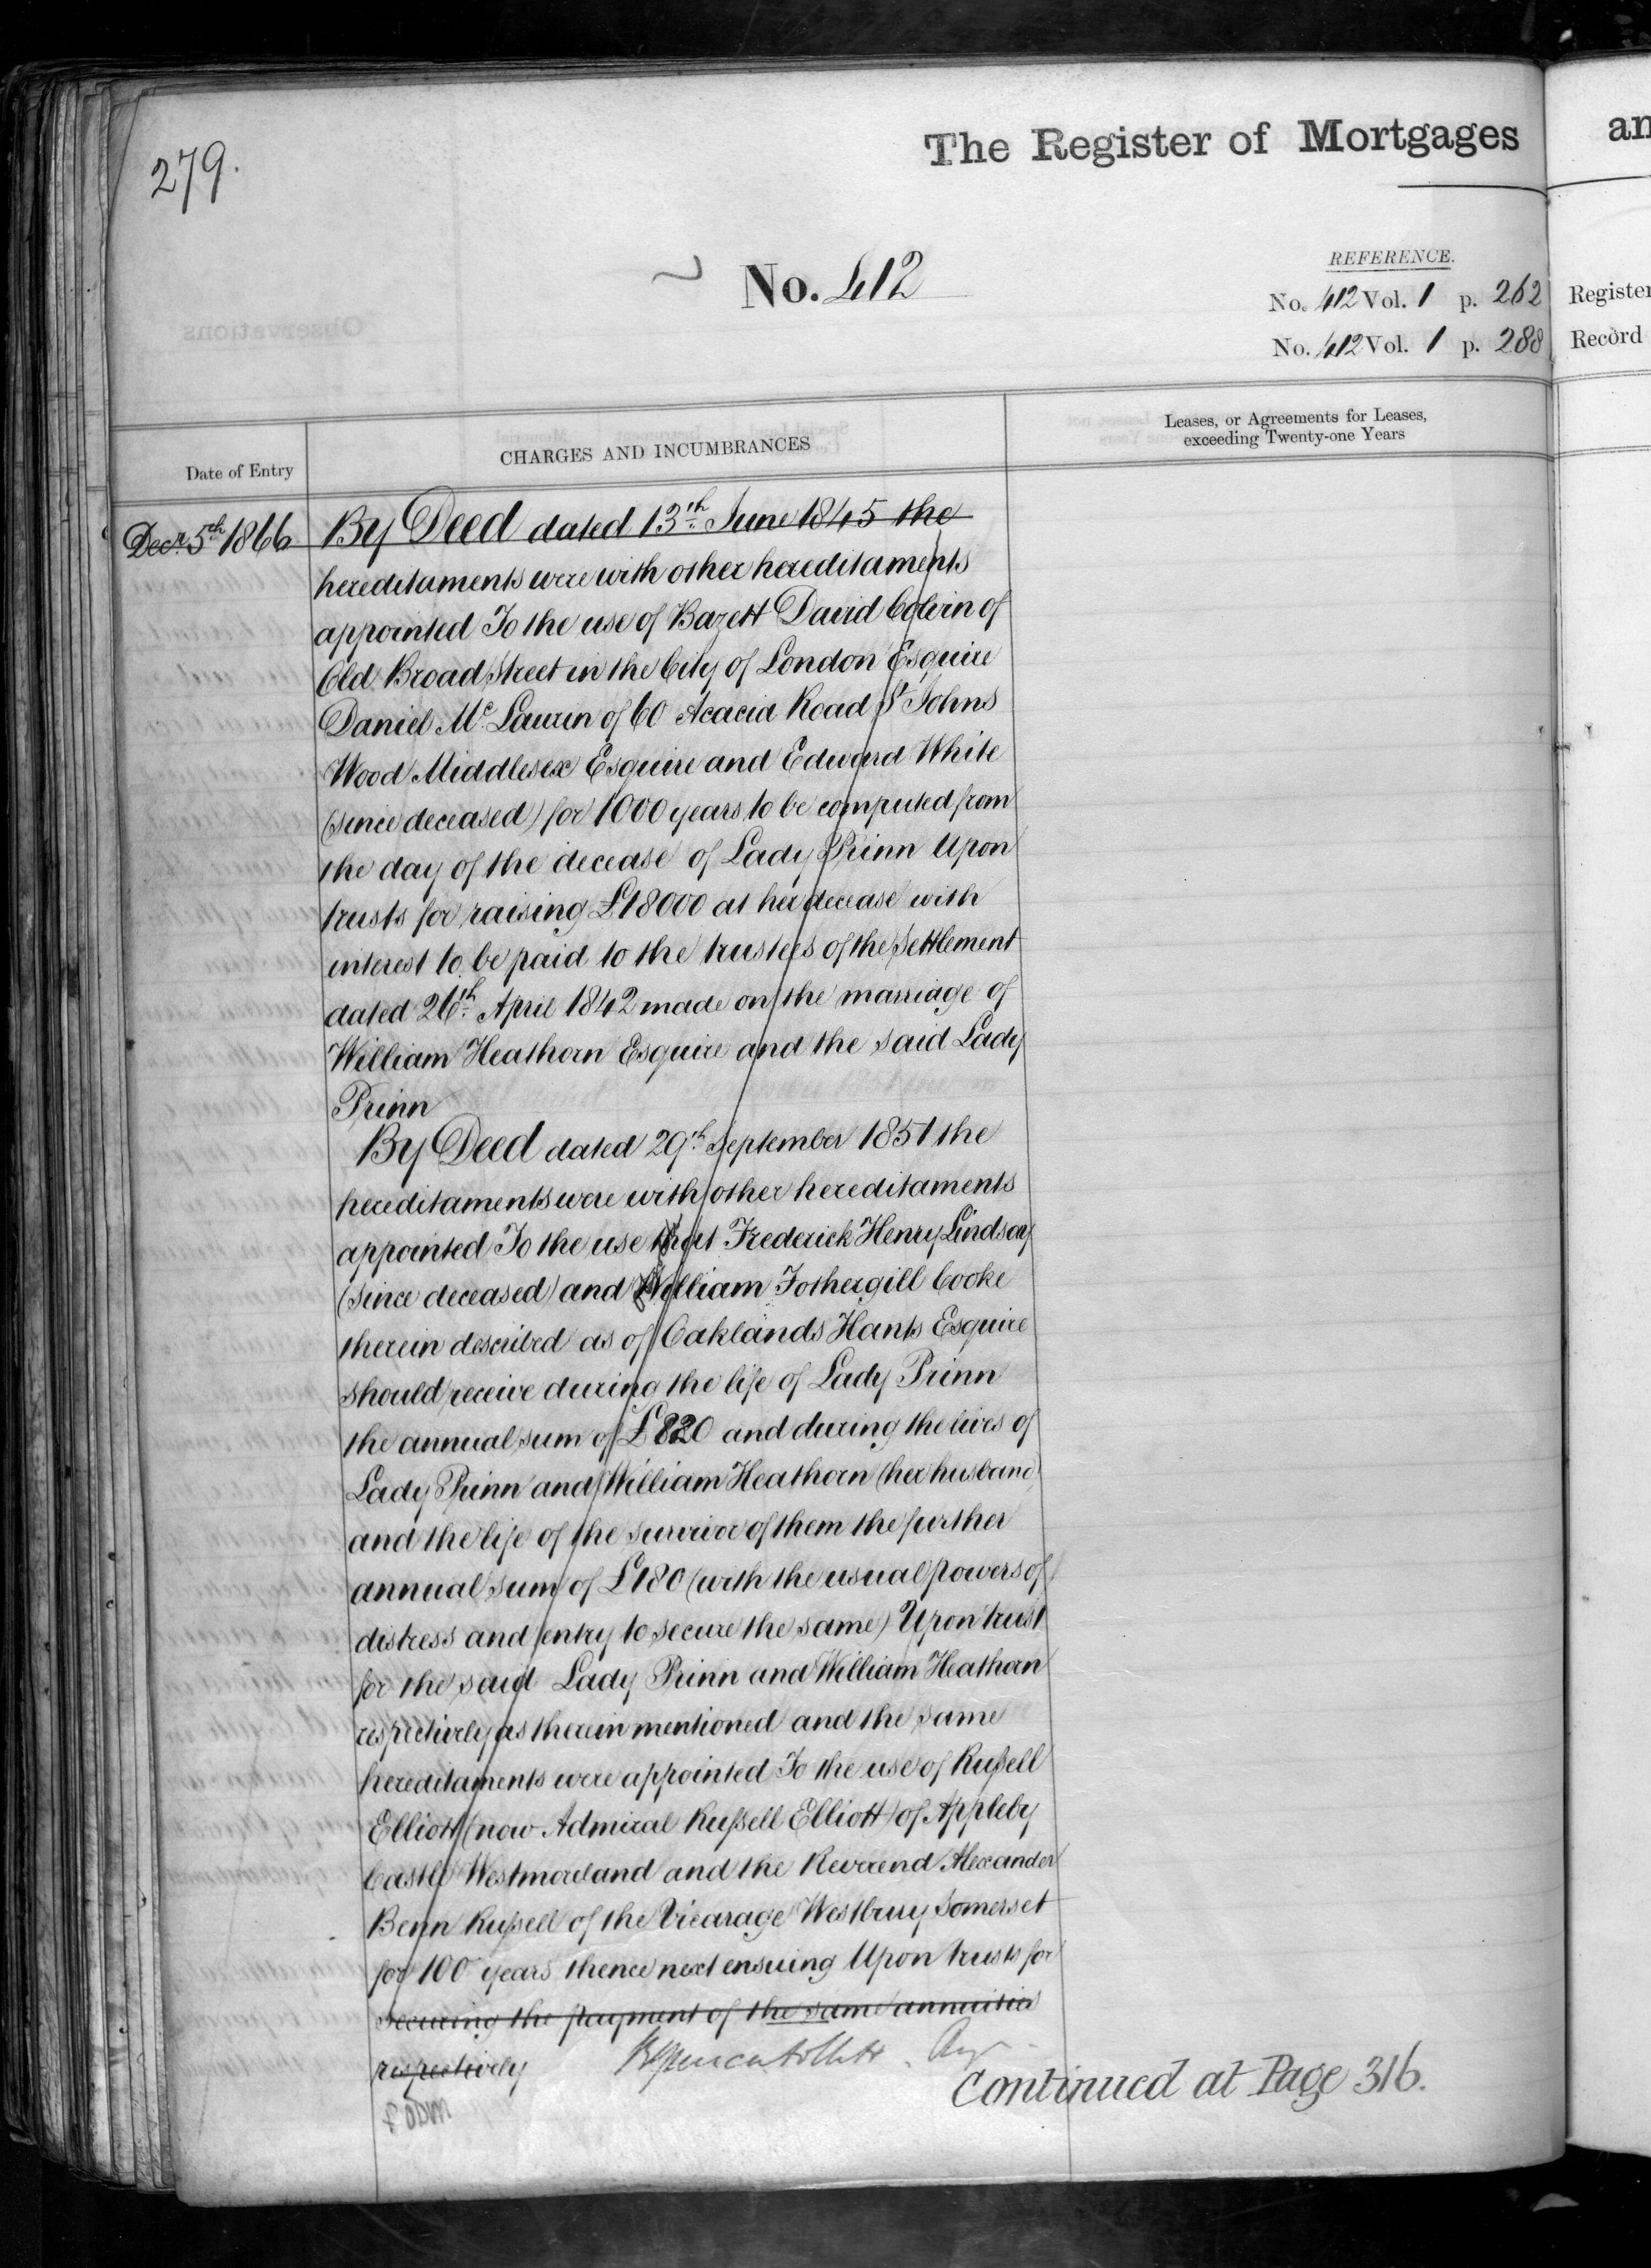 279.
The Register of Mortgages
an
No. 412
REFERENCE.
No. 412 Vol. 1 p. 262
Register
No. 412 Vol. 1 p. 288
Record
Date of Entry
CHARGES AND INCUMBRANCES
Leases, or Agreements for Leases,
exceeding Twenty-one Years
Decr. 5th 1866 By Deed dated 13th June 1845 the
hereditaments were with other hereditaments
appointed To the use of Bazett David Colvin of
Old Broad Street in the City of London Esquire
Daniel Mc. Laurin of 60 Acacia Road St Johns
Wood Middlesex Esquire and Edward White
(since deceased) for 1000 years to be computed from
the day of the decease of Lady Prinn Upon
trusts for raising £18000 at her decease with
interest to be paid to the trustees of the Settlement
dated 26th April 1842 made on the marriage of
William Heathorn Esquire and the said Lady
Prinn
By Deed dated 29th September 1851 the
hereditaments were with other hereditaments
appointed To the use that Frederick Henry Lindsay
(since deceased) and William Fothergill Cooke
therein described as of Oaklands Hants Esquire
should receive during the life of Lady Prinn
the annual sum of £820 and during the lives of
Lady Prinn and William Heathorn (her husband)
and the life of the survivor of them the further
annual sum of £180 (with the usual powers of
distress and entry to secure the same) Upon trust
for the said Lady Prinn and William Heathorn
respectively as therein mentioned and the same
hereditaments were appointed To the use of Russell
Elliott (now Admiral Russell Elliott) of Appleby
Castle Westmoreland and the Reverend Alexander
Benn Russell of the Vicarage Westbury Somerset
for 100 years thence next ensuing Upon trusts for
securing the payment of the same annuities
respectively
Continued at Page 316.